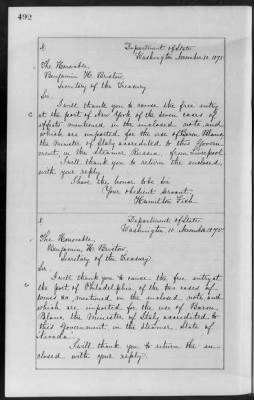 492
Department of State
Washington November 10, 1875
The Honorable
Benjamin H. Bristow,
Secretary of the Treasury
Sir,
I will thank you to cause the free entry
at the port of New York of the seven cases of
effects mentioned in the enclosed note, and
which are imported for the use of Baron Blanc
the Minister of Italy accredited to this Govern-
ment, in the Steamer Russia, from Liverpool
I will thank you to return the enclosed
with your reply.
I have the honor to be Sir
Your obedient servant
Hamilton Fish
Department of State
Washington 10 November 1875
The Honorable,
Benjamin H. Bristow,
Secretary of the Treasury
Sir
I will thank you to cause the free entry at
the port of Philadelphia, of the two cases of
wines as mentioned in the enclosed note, and
which are imported for the use of Baron
Blanc, the Minister of Italy accredited to
this Government, in the Steamer, State of
Nevada.
I will thank you to return the en-
closed with your reply.